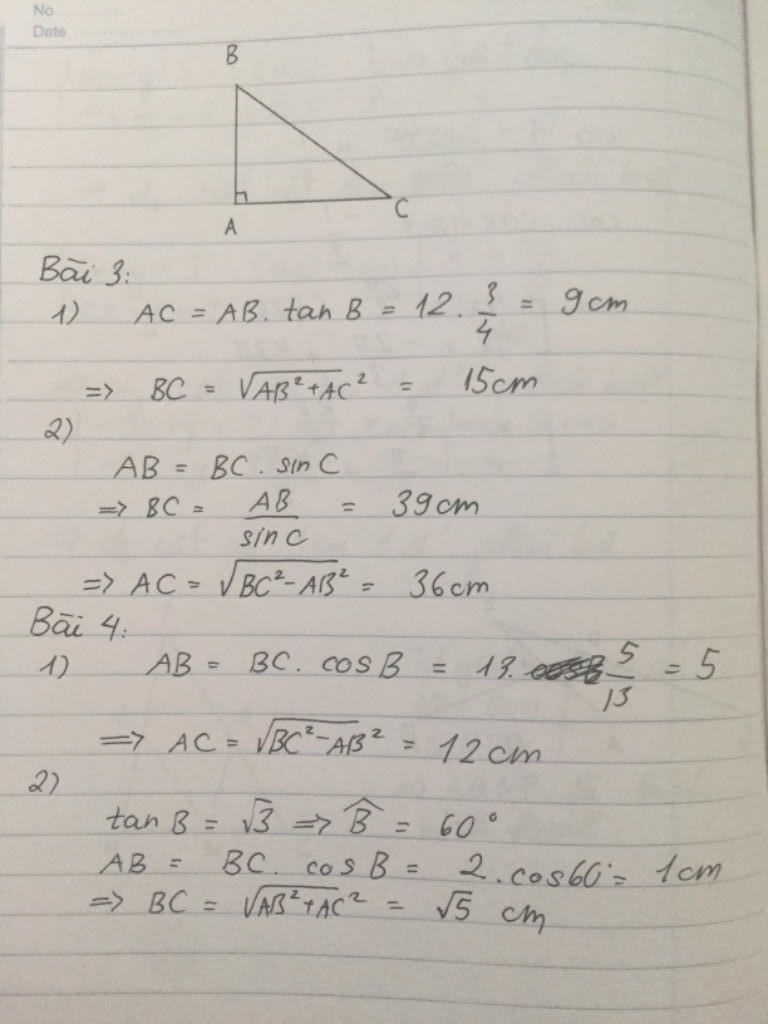 No.
Date
B
A
C
Bài 3:
1) AC = AB. tan B = 12 . 3/4 = 9cm
=> BC = √(AB²+AC²) = 15cm
2)
AB = BC . sin C
=> BC = AB/sin C = 39cm
=> AC = √(BC²-AB²) = 36cm
Bài 4:
1) AB = BC. cos B = 13. 5/13 = 5
=> AC = √(BC²-AB²) = 12cm
2)
tan B = √3 => B̂ = 60°
AB = BC. cos B = 2.cos60° = 1cm
=> BC = √(AB²+AC²) = √5 cm